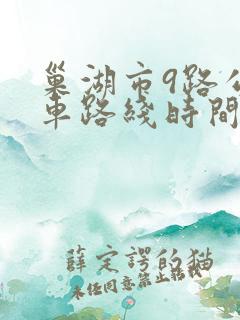 巢湖市9路公
車路綫時間
薛定諤的猫
未经同意禁止転載